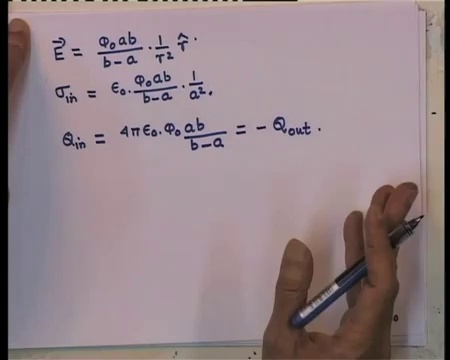 E⃗ = φ₀ab/(b-a) · 1/r² r̂.
σin = ε₀ · φ₀ab/(b-a) · 1/a².
Qin = 4πε₀ · φ₀ ab/(b-a) = - Qout.